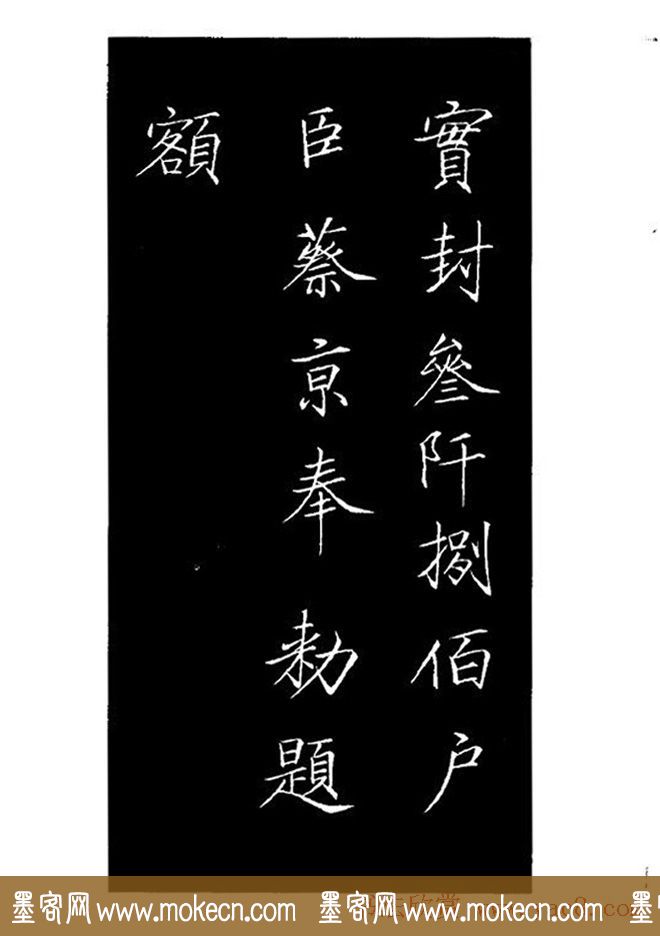 實封叄阡捌佰戶
臣蔡京奉勅題
額
墨客网 www.mokecn.com 墨客网 www.mokecn.com 墨